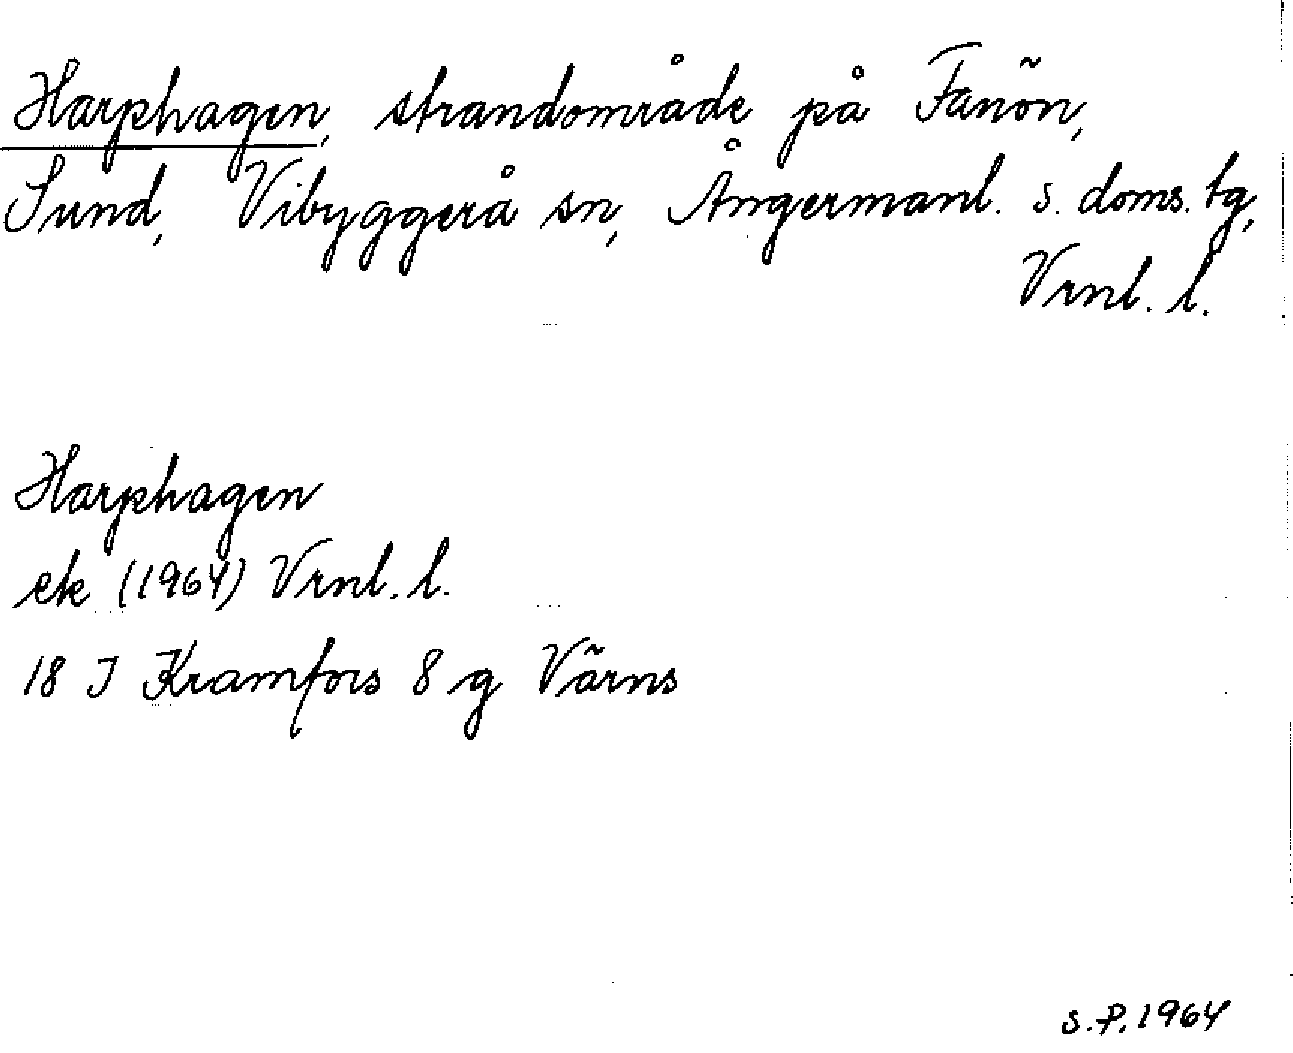 Harphagen, strandområde på Fanön,
Sund, Vibyggerå sn, Ångermanl. s. doms. tg,
Vrnl. l.
Harphagen
ek (1964) Vrnl. l.
18 J Kramfors 8 g Värns
S.P. 1964